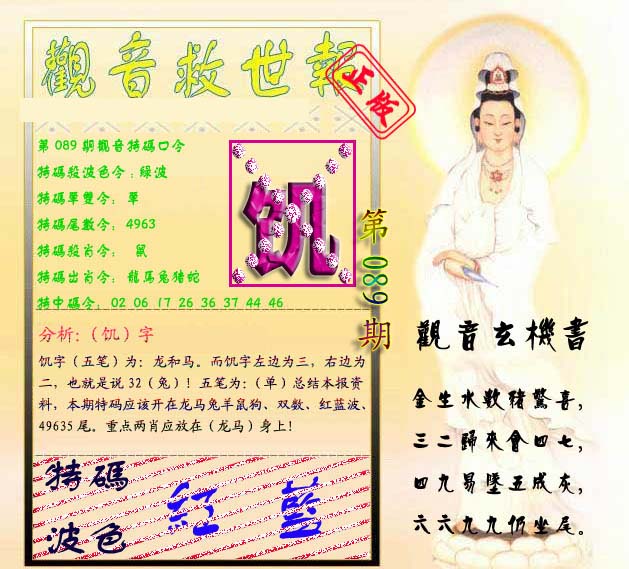 觀音救世報
正版
第089期觀音特碼口令
特碼殺波色令：綠波
特碼單雙令： 單
特碼尾數令： 4963
特碼殺肖令： 鼠
特碼出肖令： 龍馬兔猪蛇
特中碼令： 02 06 17 26 36 37 44 46
饥
第089期
分析：（饥）字
饥字（五笔）为：龙和马。而饥字左边为三，右边为
二，也就是说 32（兔）！五笔为：（单）总结本报资
料，本期特码应该开在龙马兔羊鼠狗、双数、红蓝波、
49635 尾。重点两肖应放在（龙马）身上！
特碼
波色
紅 藍
觀音玄機書
金生水數猪驚喜，
三二歸來會四七，
四九易墜五成灰，
六六九九仍坐尾。